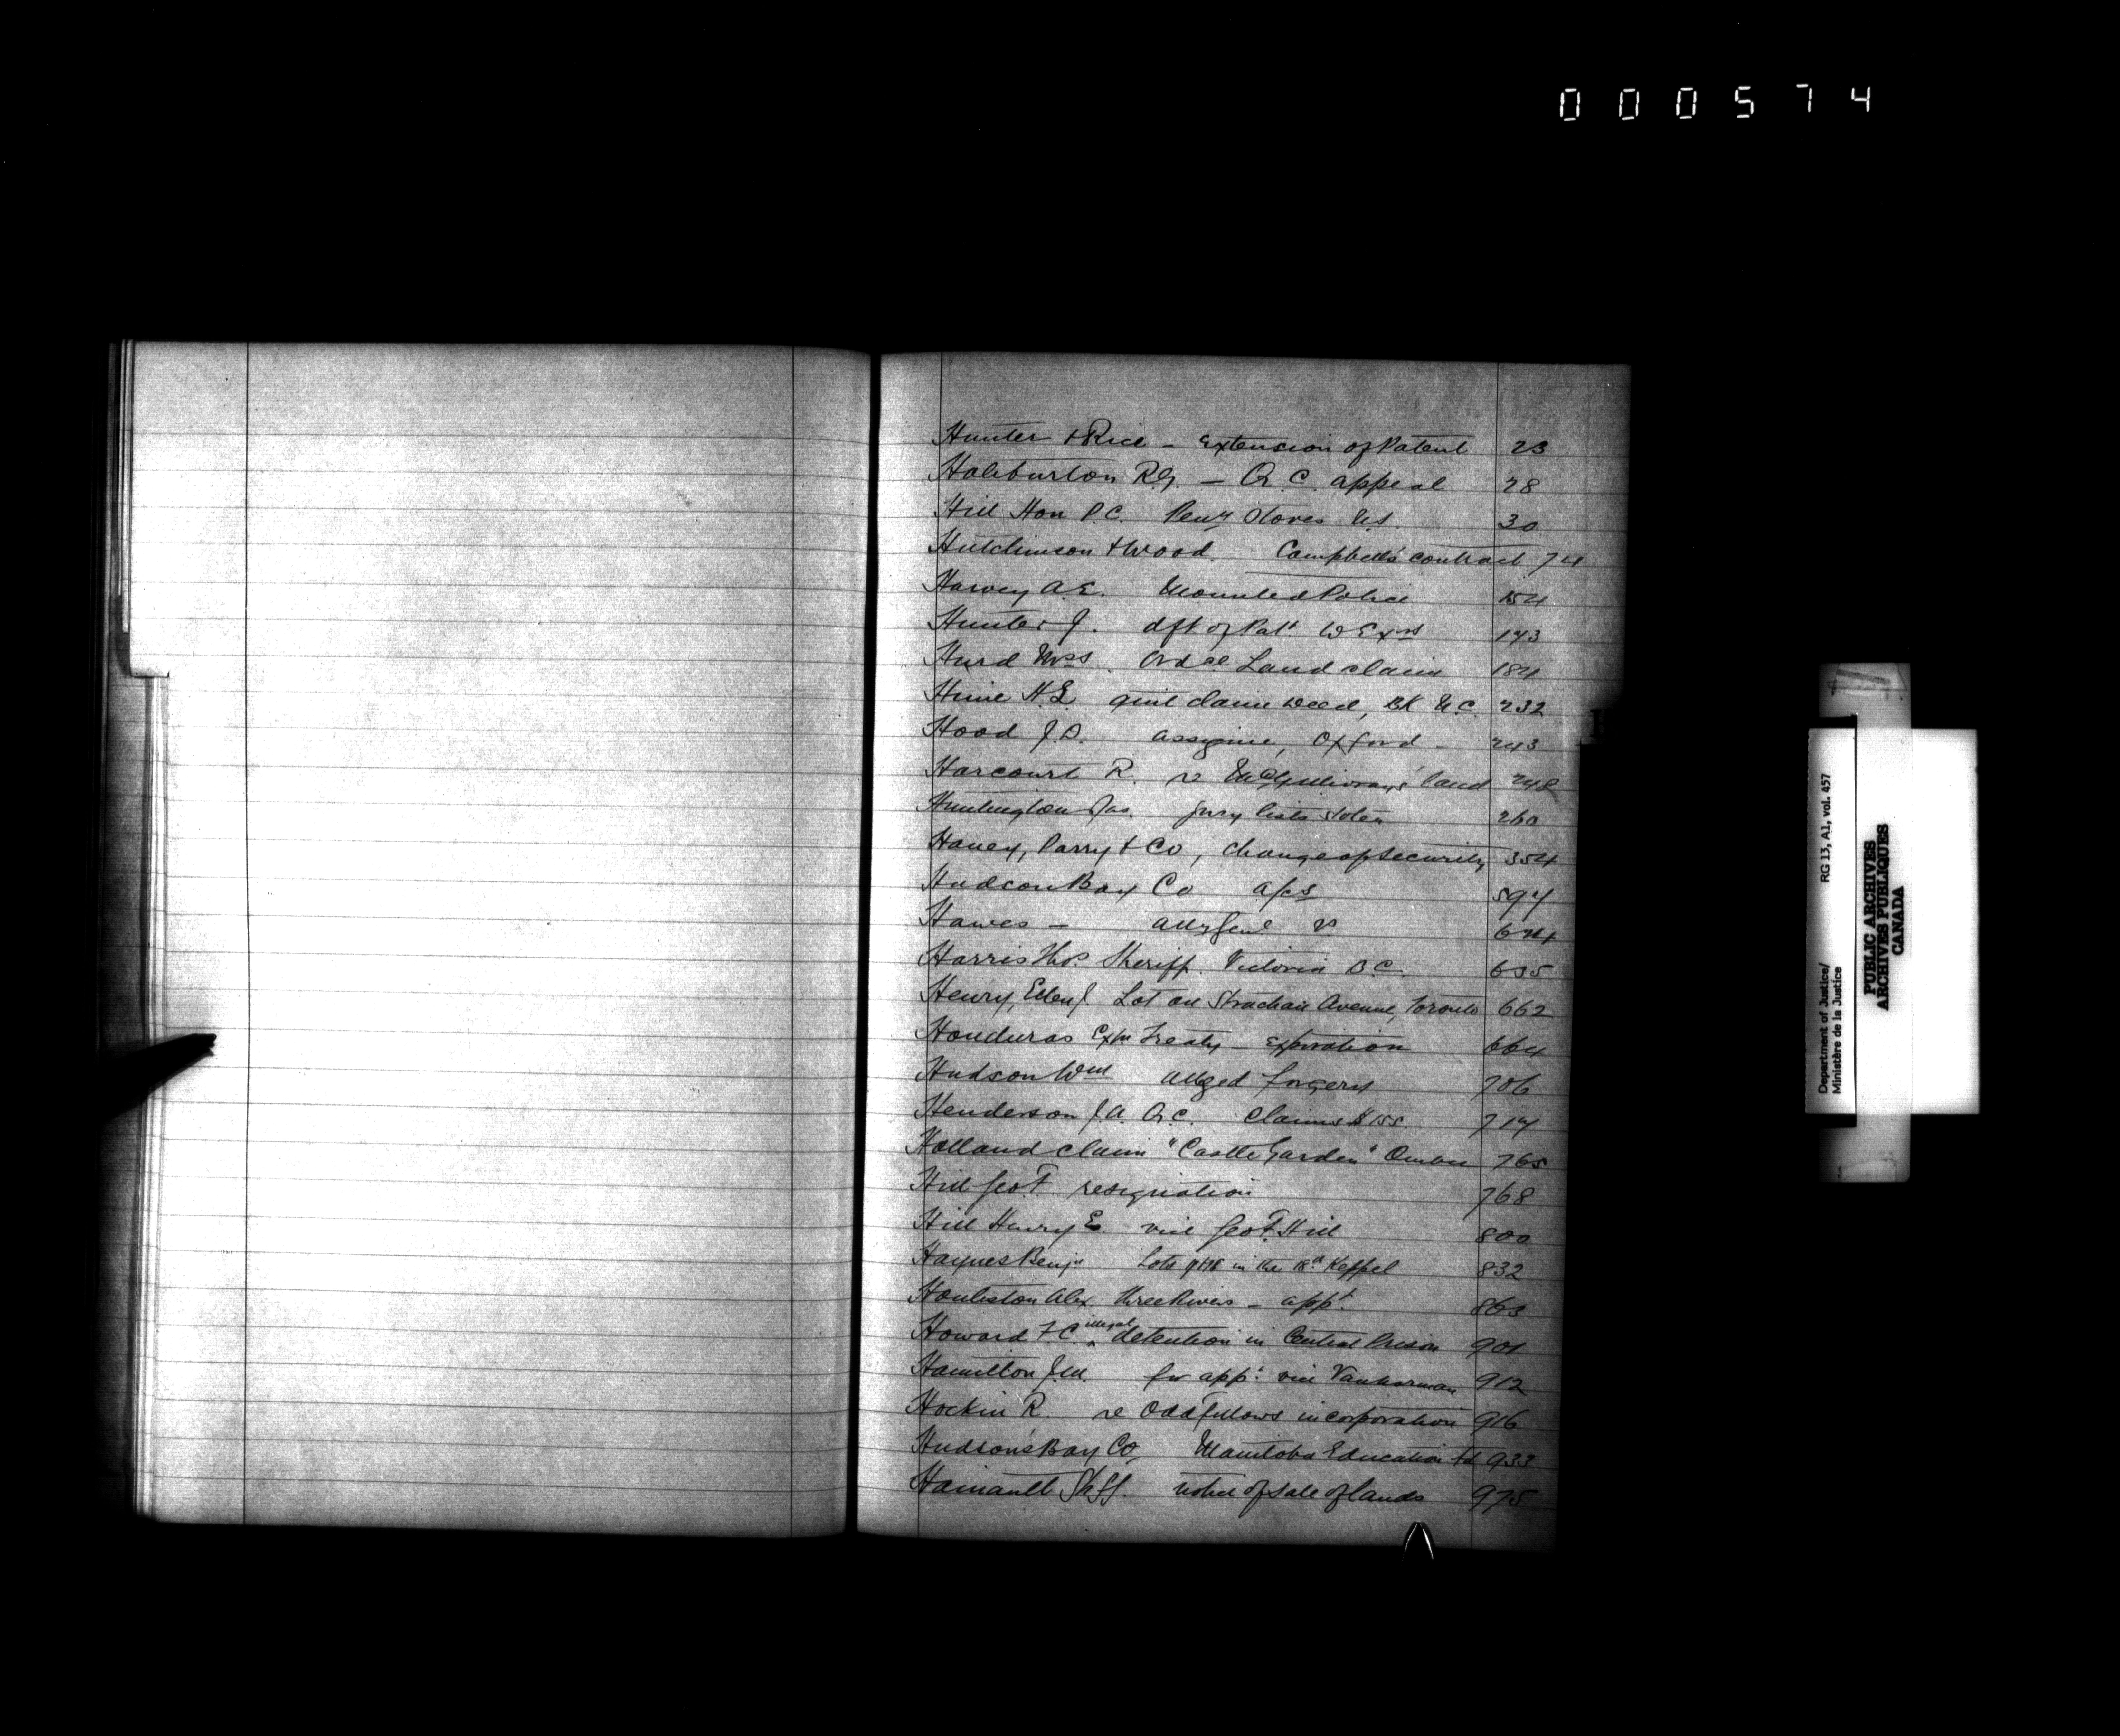 000574
Hunter & Rice - Extension of Patent 23
Haliburton R.G. - Q.C. appeal 28
Hill Hon P.C. Peny Stores N.S. 30
Hutchinson & Wood Campbell's contract 74
Harvey A.E. Mounted Police 154
Hunter J. dft of Pat. 143
Hurd Mrs. Ordce Land claim 184
Hime H.L. quit claim deed, Bk U.C. 232
Hood J.D. assignee, Oxford - 243
Harcourt R. re McGillivrays' land 248
Huntington Jas. Jury lists stolen 260
Haney, Parry & Co, change of security 354
Hudson Bay Co a/cs 594
Hawes - Atty Genl v 674
Harris Thos. Sheriff. Victoria B.C. 635
Henry, Ellen J. Lot on Strachan Avenue, Toronto 662
Honduras Extn Treaty - Expiration 664
Hudson Wm alleged forgery 706
Henderson J.A. Q.C. Claims $155 714
Holland claim "Castle Garden" 765
Hill Geo F. resignation 768
Hill Henry E. vice Geo F. Hill 800
Haynes Benjn Lots in the 18th Keppel 832
Houliston Alex Three Rivers - appt. 863
Howard F C illegal detention in Central Prison 901
Hamilton J.M. for appt. vice Vankorman 912
Hockin R. re Oddfellows incorporation 916
Hudson's Bay Co, Manitoba Education fd 933
Hainault Shff. notice of sale of lands 975
H
Department of Justice/ RG 13, A1, vol. 457
Ministère de la Justice
PUBLIC ARCHIVES
ARCHIVES PUBLIQUES
CANADA